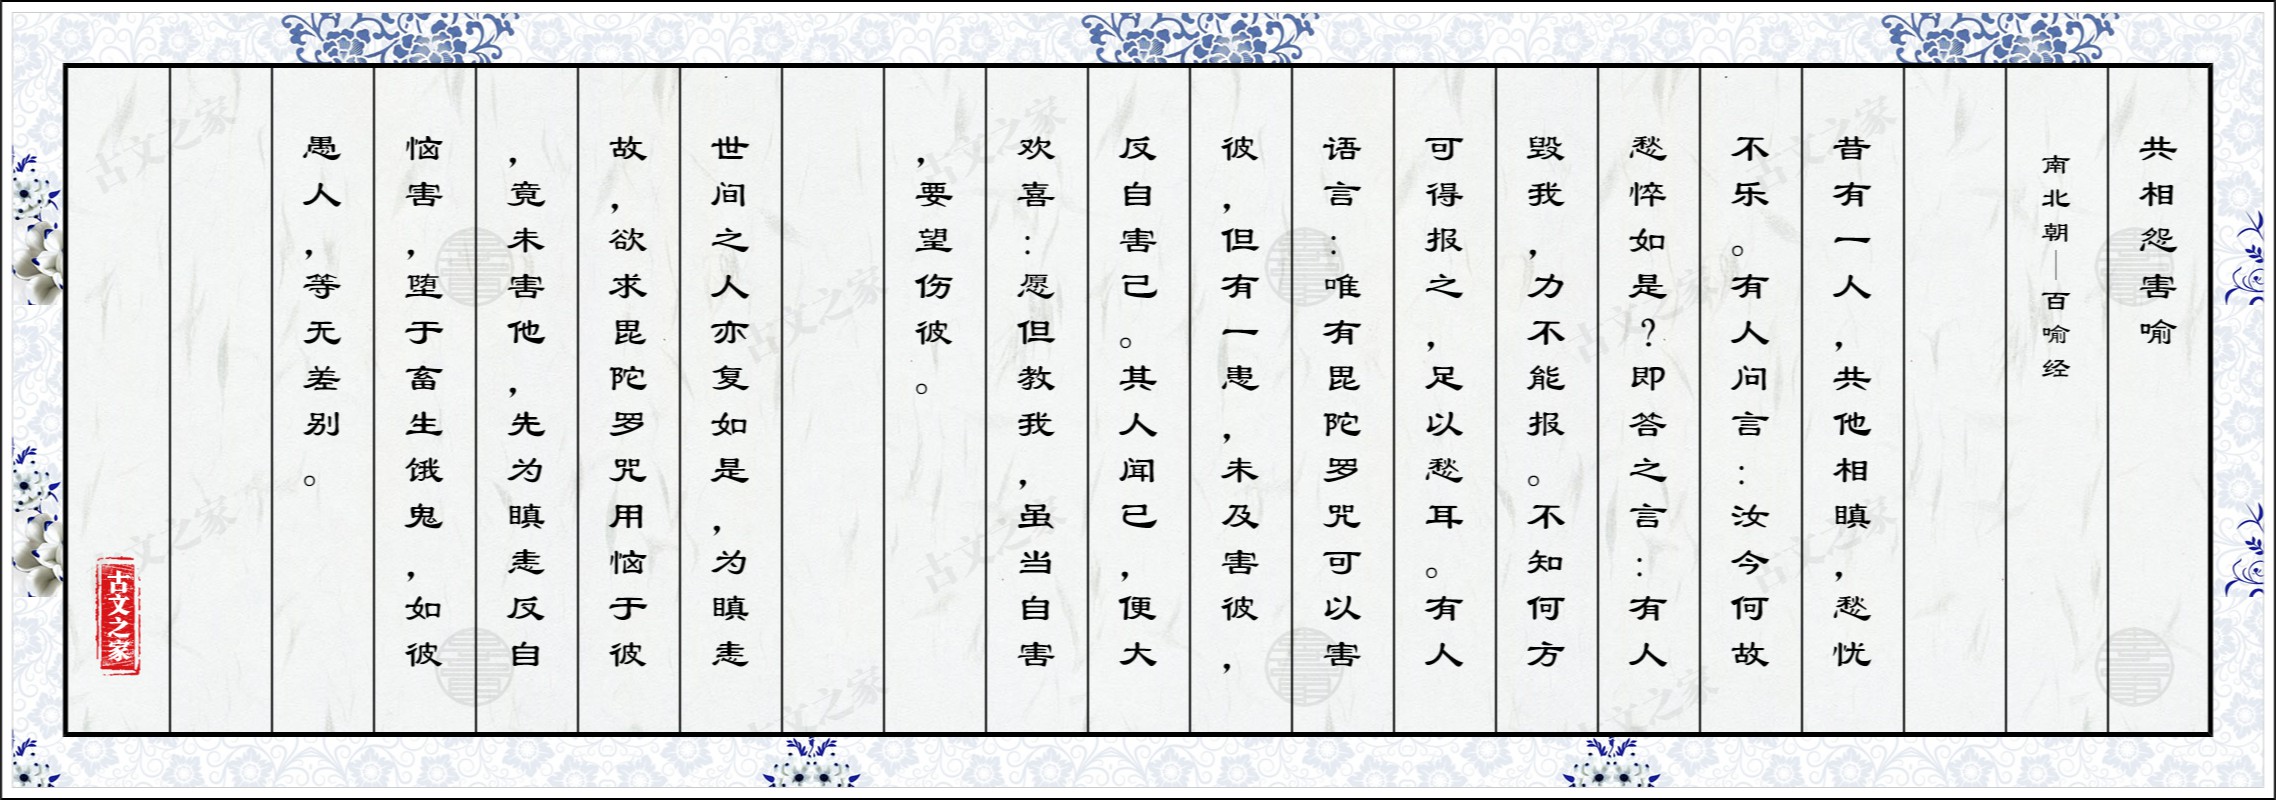 共相怨害喻
南北朝—百喻经
昔有一人,共他相瞋,愁忧
不乐。有人问言:汝今何故
愁悴如是?即答之言:有人
毁我,力不能报。不知何方
可得报之,足以愁耳。有人
语言:唯有毘陀罗咒可以害
彼,但有一患,未及害彼,
反自害己。其人闻已,便大
欢喜:愿但教我,虽当自害
,要望伤彼。
世间之人亦复如是,为瞋恚
故,欲求毘陀罗咒用恼于彼
,竟未害他,先为瞋恚反自
恼害,堕于畜生饿鬼,如彼
愚人,等无差别。
古文之家